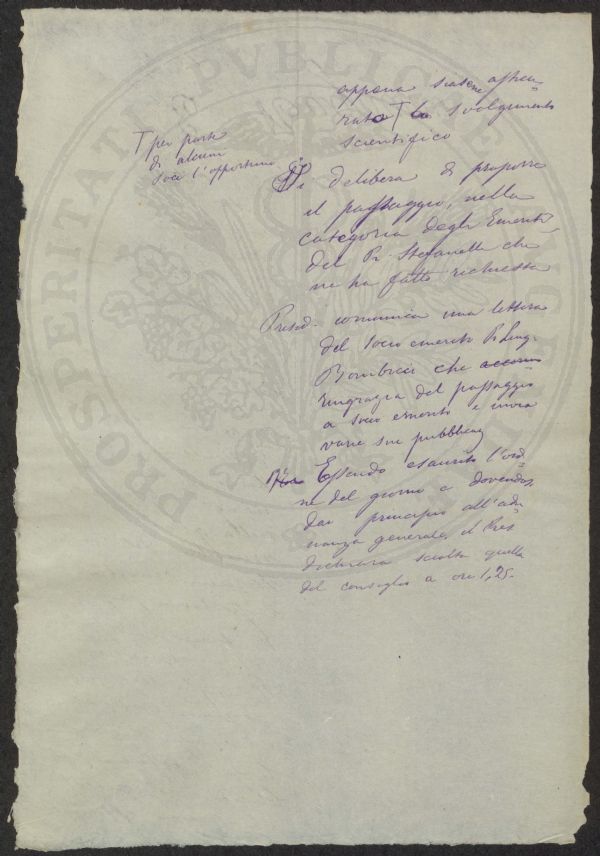 PROSPERITATI PVBLICAE
appena siasene assicu-
rato T lo svolgimento
scientifico
T per parte
di alcuni
soci l'opportuno
Si delibera di proporre
il passaggio, nella
categoria degli Emeriti,
del Pr. Stefanelli che
ne ha fatto richiesta
Presid. comunica una lettera
del Socio emerito Pr. Luigi
Bombicci che
ringrazia del passaggio
a socio emerito e invia
varie sue pubblicaz
Essendo esaurito l'ordi-
ne del giorno e dovendosi
dar principio all'adu-
nanza generale, il Pres
dichiara sciolta quella
del consiglio a ore 1,25.